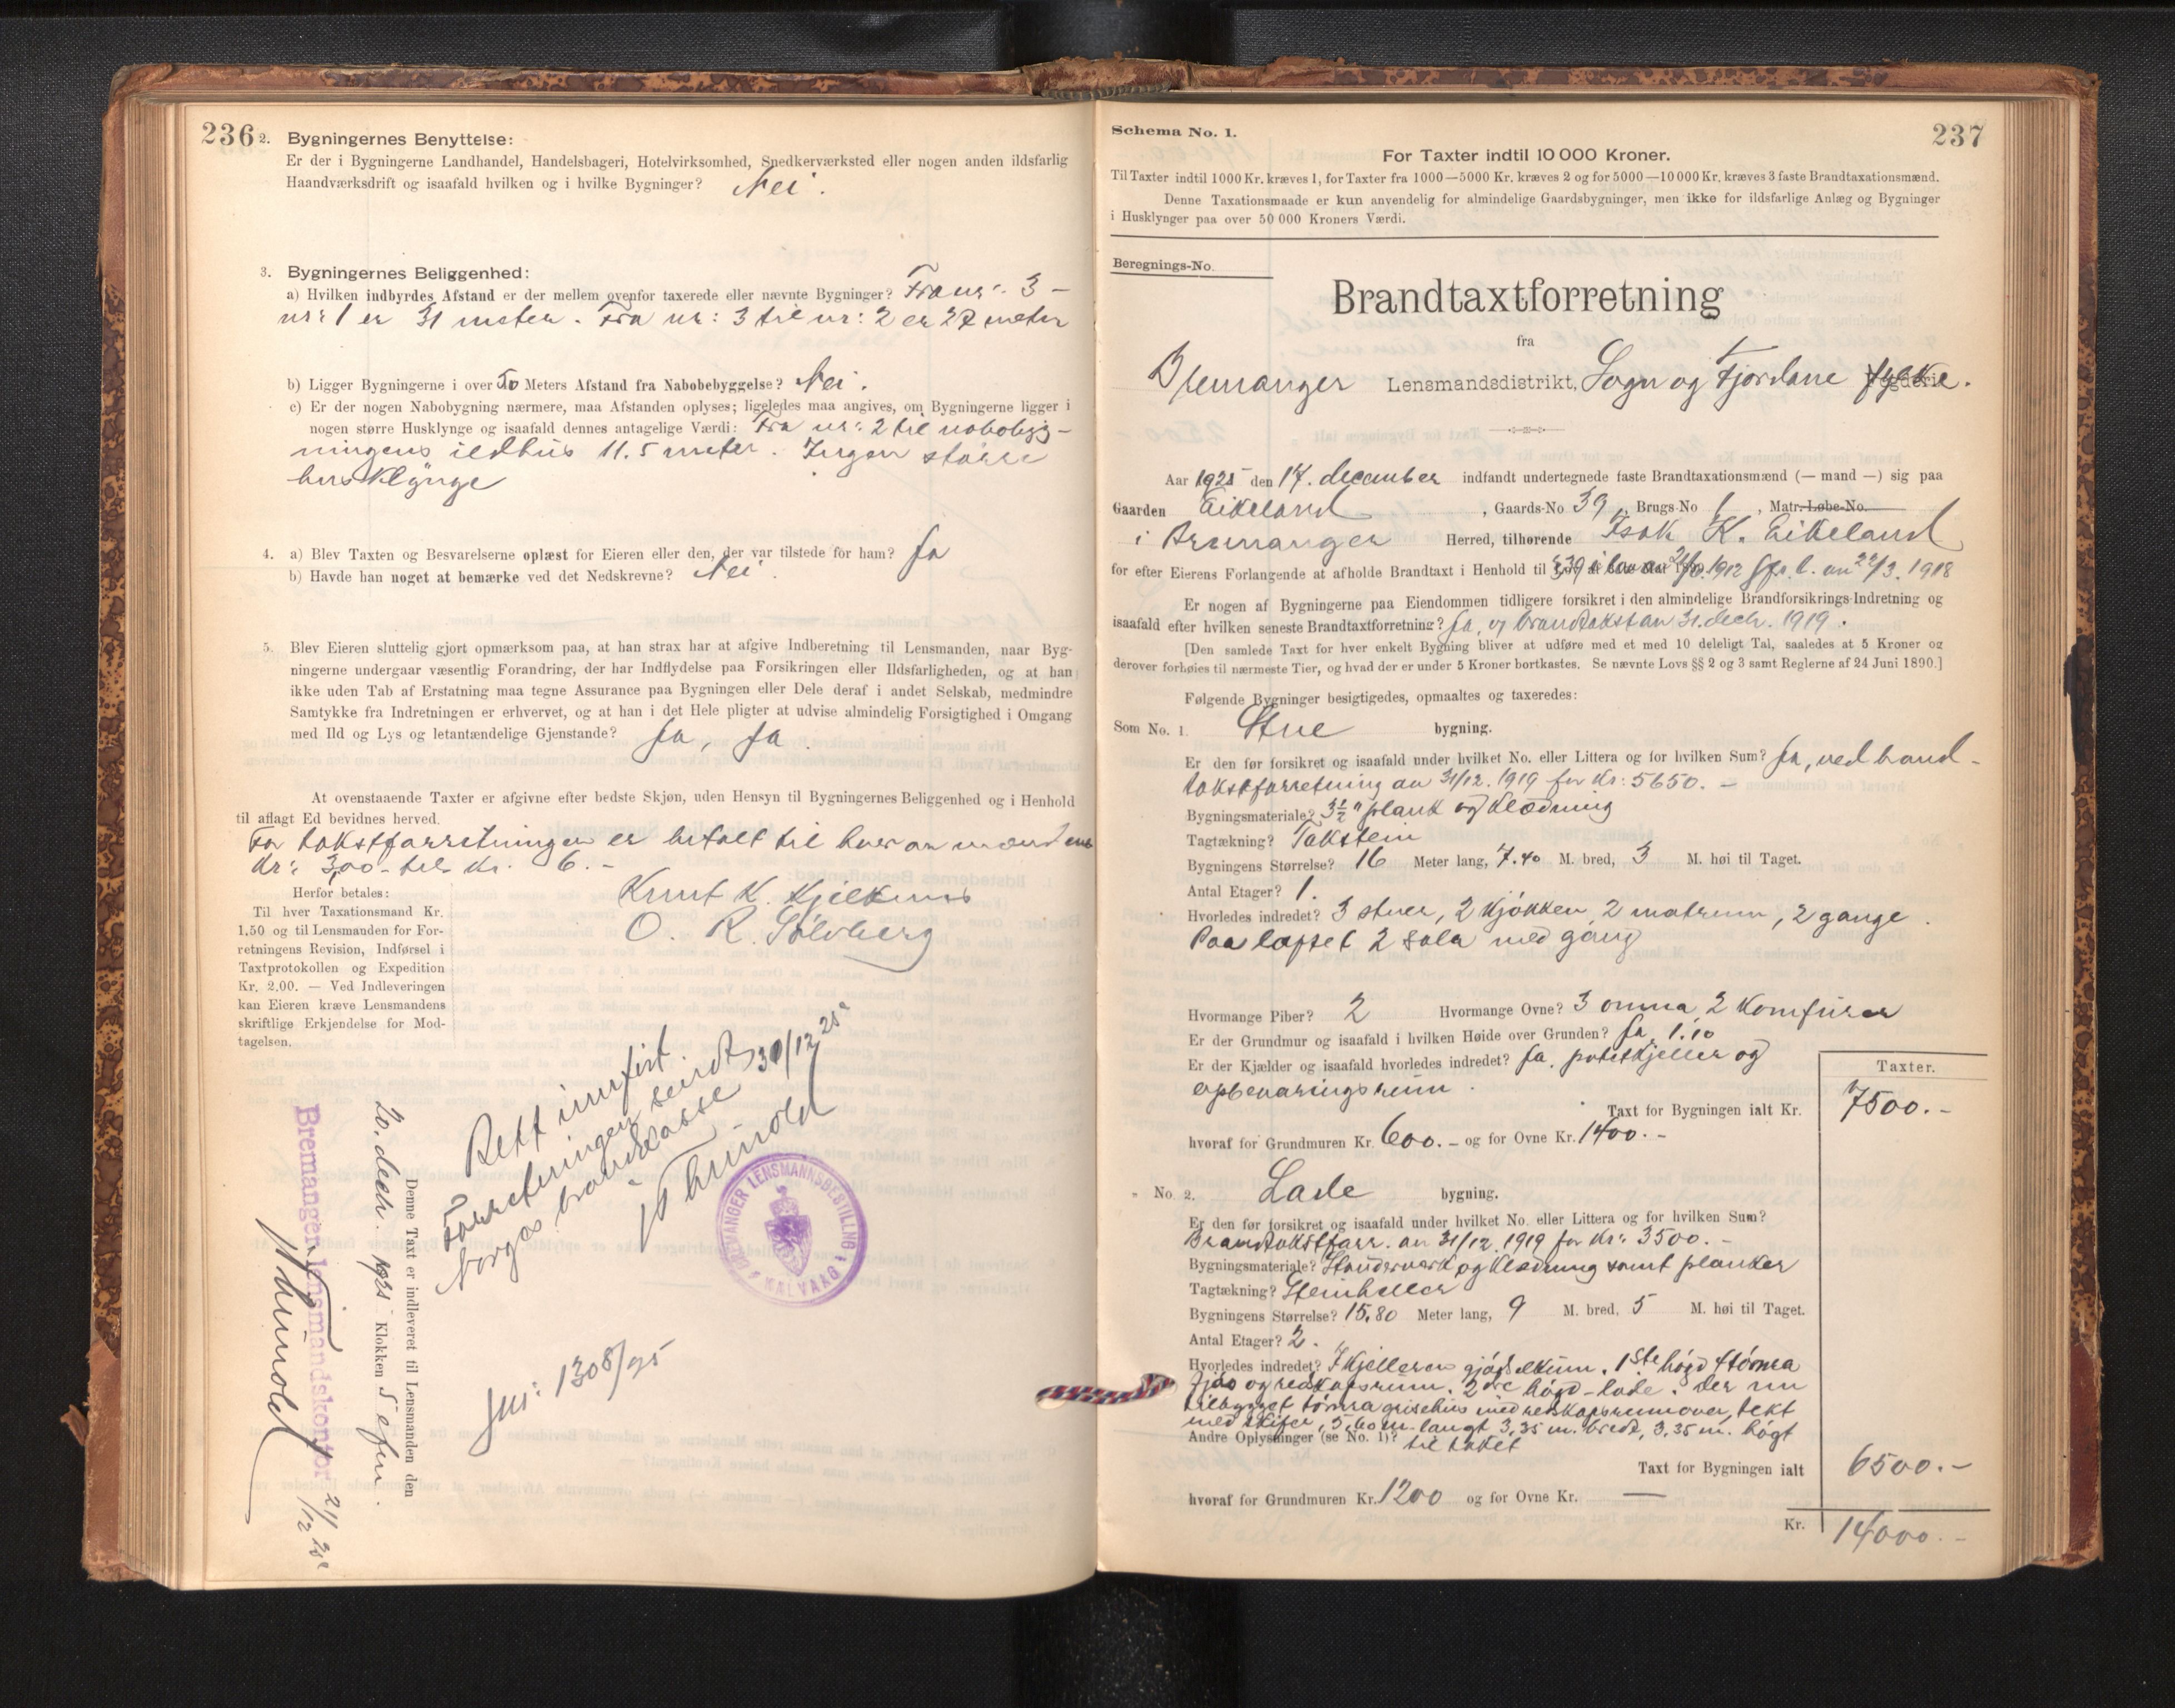 236
2. Bygningernes Benyttelse:
Er der i Bygningerne Landhandel, Handelsbageri, Hotelvirksomhed, Snedkerværksted eller nogen anden ildsfarlig
Haandværksdrift og isaafald hvilken og i hvilke Bygninger? Nei.
3. Bygningernes Beliggenhed:
a) Hvilken indbyrdes Afstand er der mellem ovenfor taxerede eller nævnte Bygninger? Fra nr: 3 –
nr: 1 er 31 meter. Fra nr: 3 til nr: 2 er 27 meter
b) Ligger Bygningerne i over 50 Meters Afstand fra Nabobebyggelse? Nei.
c) Er der nogen Nabobygning nærmere, maa Afstanden oplyses; ligeledes maa angives, om Bygningerne ligger i
nogen større Husklynge og isaafald dennes antagelige Værdi: Fra nr: 2 til nabobyg-
ningens ildhus 11.5 meter. Ingen større
husklynge
4. a) Blev Taxten og Besvarelserne oplæst for Eieren eller den, der var tilstede for ham? Ja
b) Havde han noget at bemærke ved det Nedskrevne? Nei.
5. Blev Eieren sluttelig gjort opmærksom paa, at han strax har at afgive Indberetning til Lensmanden, naar Byg-
ningerne undergaar væsentlig Forandring, der har Indflydelse paa Forsikringen eller Ildsfarligheden, og at han
ikke uden Tab af Erstatning maa tegne Assurance paa Bygningen eller Dele deraf i andet Selskab, medmindre
Samtykke fra Indretningen er erhvervet, og at han i det Hele pligter at udvise almindelig Forsigtighed i Omgang
med Ild og Lys og letantændelige Gjenstande? Ja, Ja.
At ovenstaaende Taxter er afgivne efter bedste Skjøn, uden Hensyn til Bygningernes Beliggenhed og i Henhold
til aflagt Ed bevidnes herved.
For takstforretningen er betalt til hver av mændene
Kr: 3,00 – tils. Kr. 6.–
Herfor betales:
Til hver Taxationsmand Kr.
1,50 og til Lensmanden for For-
retningens Revision, Indførsel i
Taxtprotokollen og Expedition
Kr. 2,00. — Ved Indleveringen
kan Eieren kræve Lensmandens
skriftlige Erkjendelse for Mod-
tagelsen.
Knut K. Kjelkenes
O. R. Sølvberg
Rett innført.
Forretningen sendt
Norges brandkasse 30/12 25
BREMANGER LENSMANNSBESTILLING
KALVAAG
Jnr: 1308/25
Denne Taxt er indleveret til Lensmanden den
20. decbr. 1925 Klokken 5 efm.
Bremanger lensmandskontor 21/12 25
237
Schema No. 1.
For Taxter indtil 10 000 Kroner.
Til Taxter indtil 1000 Kr. kræves 1, for Taxter fra 1000—5000 Kr. kræves 2 og for 5000—10 000 Kr. kræves 3 faste Brandtaxationsmænd.
Denne Taxationsmaade er kun anvendelig for almindelige Gaardsbygninger, men ikke for ildsfarlige Anlæg og Bygninger
i Husklynger paa over 50 000 Kroners Værdi.
Beregnings-No.
Brandtaxtforretning
fra
Bremanger Lensmandsdistrikt, Sogn og Fjordane fylke.
Aar 1925 den 17. december indfandt undertegnede faste Brandtaxationsmænd (— mand —) sig paa
Gaarden Eikeland, Gaards-No 39, Brugs-No 1, Matr. Løbe-No.
i Bremanger Herred, tilhørende Isak K. Eikeland
for efter Eierens Forlangende at afholde Brandtaxt i Henhold til § 39 i lov av 1912 jfr. l. av 22/3. 1918
Er nogen af Bygningerne paa Eiendommen tidligere forsikret i den almindelige Brandforsikrings-Indretning og
isaafald efter hvilken seneste Brandtaxtforretning? Ja, v/ brandtakst av 31. decbr. 1919.
[Den samlede Taxt for hver enkelt Bygning bliver at udføre med et med 10 deleligt Tal, saaledes at 5 Kroner og
derover forhøies til nærmeste Tier, og hvad der er under 5 Kroner bortkastes. Se nævnte Lovs §§ 2 og 3 samt Reglerne af 24 Juni 1890.]
Følgende Bygninger besigtigedes, opmaaltes og taxeredes:
Som No. 1. Stue bygning.
Er den før forsikret og isaafald under hvilket No. eller Littera og for hvilken Sum? Ja, ved brand-
takstforretning av 31/12. 1919 for Kr: 5650.–
Bygningsmateriale? 3½" plank og klædning
Tagtækning? Takstein
Bygningens Størrelse? 16 Meter lang, 7.40 M. bred, 3 M. høi til Taget.
Antal Etager? 1.
Hvorledes indredet? 3 stuer, 2 kjøkken, 2 matrum, 2 gange.
Paa loftet 2 sale med gang
Hvormange Piber? 2 Hvormange Ovne? 3 omna, 2 komfurer
Er der Grundmur og isaafald i hvilken Høide over Grunden? Ja, 1.10
Er der Kjælder og isaafald hvorledes indredet? Ja, potetkjeller og
opbevaringsrum.
Taxter.
Taxt for Bygningen ialt Kr. 7500.–
hvoraf for Grundmuren Kr. 600.– og for Ovne Kr. 1400.–
„ No. 2. Lade bygning.
Er den før forsikret og isaafald under hvilket No. eller Littera og for hvilken Sum?
Brandtakstforr. av 31/12. 1919 for Kr: 3500.–
Bygningsmateriale? Standerverk og klædning samt planker
Tagtækning? Steinheller
Bygningens Størrelse? 15,80 Meter lang, 9 M. bred, 5 M. høi til Taget.
Antal Etager? 2.
Hvorledes indredet? I kjelleren gjødselkum. 1ste høgd tømra
fjøs og redskapsrum. 2dre høgd – lade. Der nu
tilbygget tømra grisehus med redskapsrum over, tekt
med skifer, 5,60 m. langt 3,35 m. bredt, 3,35 m. høgt
Andre Oplysninger (se No. 1)? til taket
Taxt for Bygningen ialt 6500.–
hvoraf for Grundmuren Kr. 1200 og for Ovne Kr. —
Kr. 14000.–